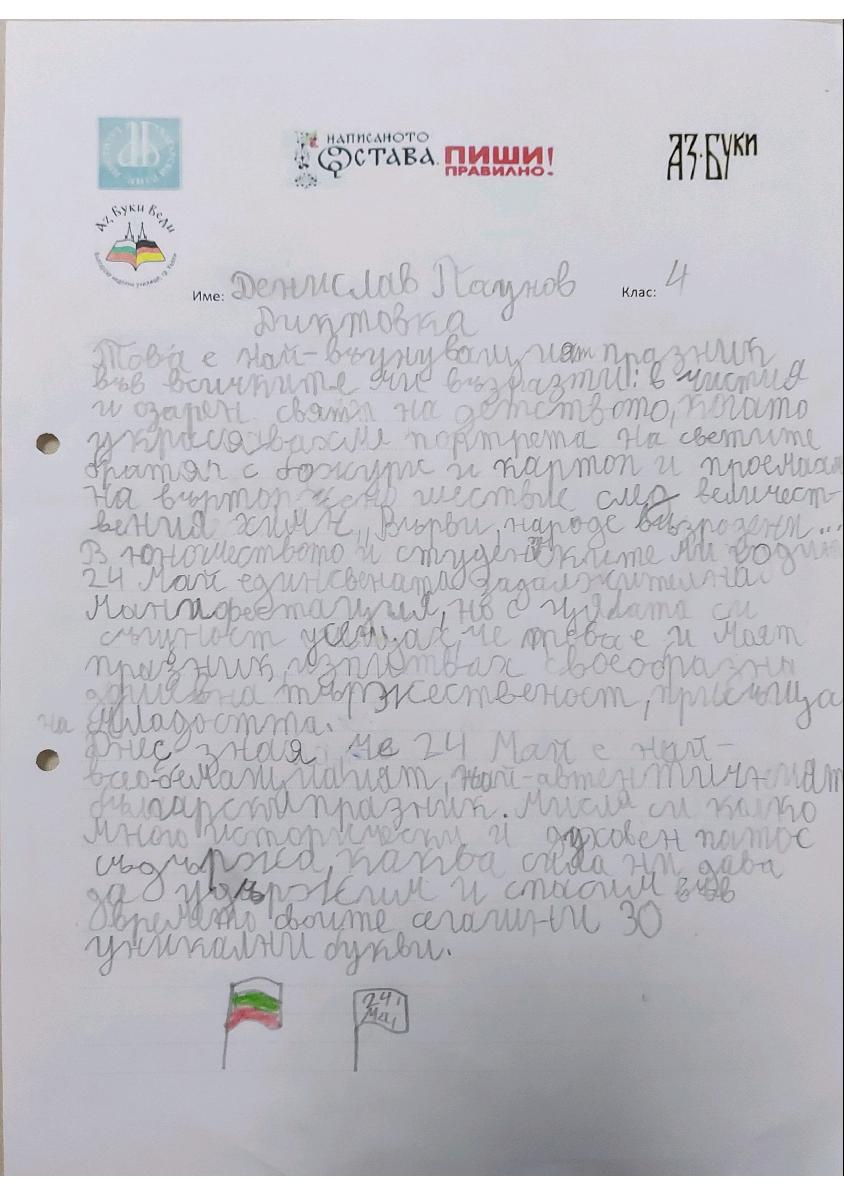 НАПИСАНОТО
ОСТАВА. ПИШИ!
ПРАВИЛНО!
АЗ·БУКИ
Аз, Буки Веди
Име: Денислав Паунов Клас: 4
Диктовка
Това е най-вълнуващият празник
във всичките ми възрасти: в чистия
и озарен свят на детството, когато
украсявахме портрета на светите
братя с божури и картон и
на шествие след величест-
вения химн „Върви, народе възродени...
В юношеството и студентските ми години
24 Май единсвената задалжителна
Манифестация, но с цялата си
същност усещах, че това е и Моят
празник, изпитвах своеобразна
тържественост, присъща
на Младостта.
Днес зная че 24 Май е най-
най-автентичният
български празник. Мисля си колко
много исторически и духовен патос
съдържа, каква сила ни дава
да удържим и спасим във
времето своите сегашни 30
уникални букви.
24
Май